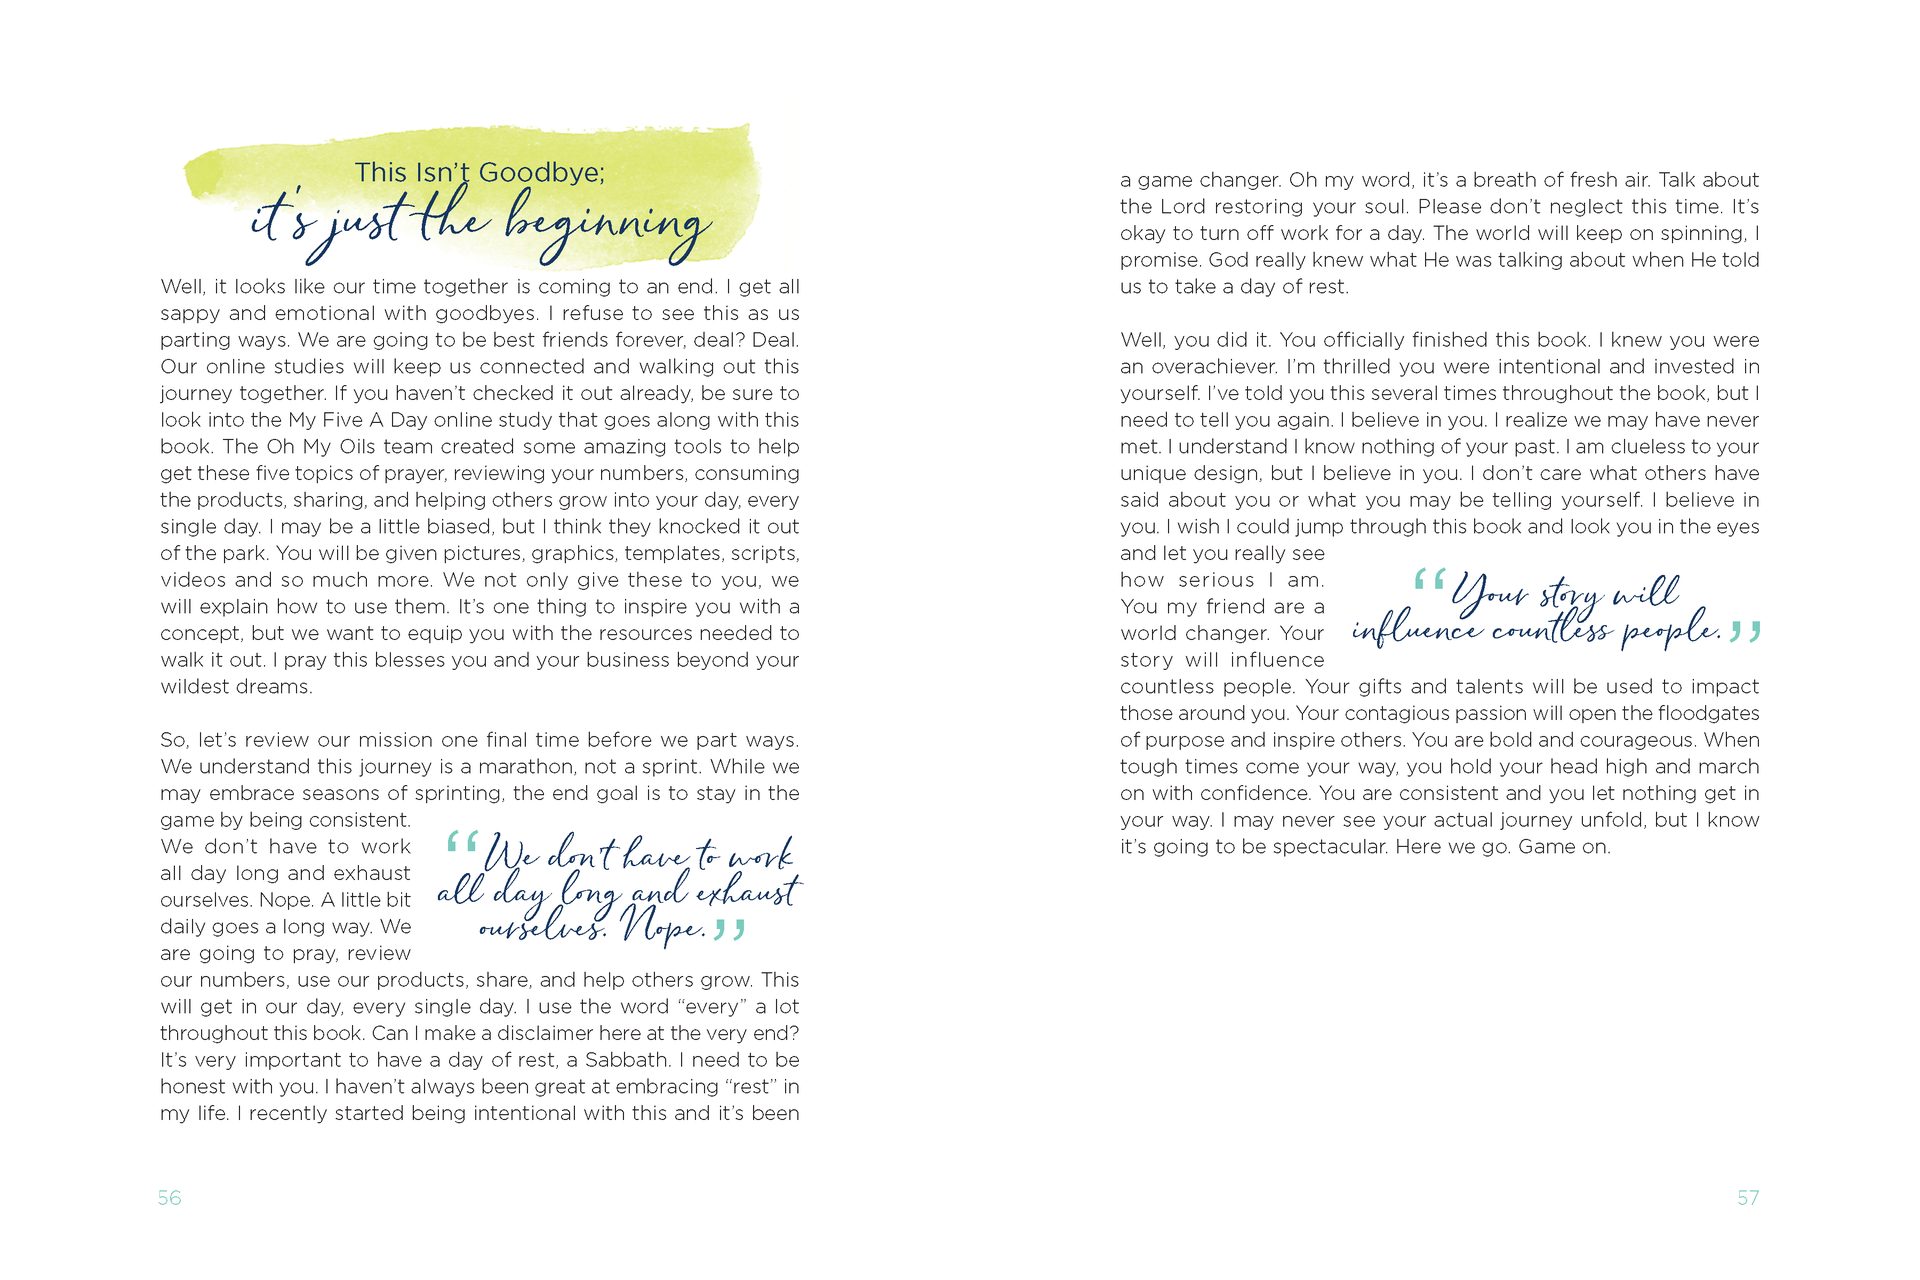 This Isn’t Goodbye;
it's just the beginning
Well, it looks like our time together is coming to an end. I get all
sappy and emotional with goodbyes. I refuse to see this as us
parting ways. We are going to be best friends forever, deal? Deal.
Our online studies will keep us connected and walking out this
journey together. If you haven’t checked it out already, be sure to
look into the My Five A Day online study that goes along with this
book. The Oh My Oils team created some amazing tools to help
get these five topics of prayer, reviewing your numbers, consuming
the products, sharing, and helping others grow into your day, every
single day. I may be a little biased, but I think they knocked it out
of the park. You will be given pictures, graphics, templates, scripts,
videos and so much more. We not only give these to you, we
will explain how to use them. It’s one thing to inspire you with a
concept, but we want to equip you with the resources needed to
walk it out. I pray this blesses you and your business beyond your
wildest dreams.
So, let’s review our mission one final time before we part ways.
We understand this journey is a marathon, not a sprint. While we
may embrace seasons of sprinting, the end goal is to stay in the
game by being consistent.
We don’t have to work
all day long and exhaust
ourselves. Nope. A little bit
daily goes a long way. We
are going to pray, review
“We don't have to work
all day long and exhaust
ourselves. Nope.”
our numbers, use our products, share, and help others grow. This
will get in our day, every single day. I use the word “every” a lot
throughout this book. Can I make a disclaimer here at the very end?
It’s very important to have a day of rest, a Sabbath. I need to be
honest with you. I haven’t always been great at embracing “rest” in
my life. I recently started being intentional with this and it’s been
56
a game changer. Oh my word, it’s a breath of fresh air. Talk about
the Lord restoring your soul. Please don’t neglect this time. It’s
okay to turn off work for a day. The world will keep on spinning, I
promise. God really knew what He was talking about when He told
us to take a day of rest.
Well, you did it. You officially finished this book. I knew you were
an overachiever. I’m thrilled you were intentional and invested in
yourself. I’ve told you this several times throughout the book, but I
need to tell you again. I believe in you. I realize we may have never
met. I understand I know nothing of your past. I am clueless to your
unique design, but I believe in you. I don’t care what others have
said about you or what you may be telling yourself. I believe in
you. I wish I could jump through this book and look you in the eyes
and let you really see
how serious I am.
You my friend are a
world changer. Your
story will influence
“Your story will
influence countless people.”
countless people. Your gifts and talents will be used to impact
those around you. Your contagious passion will open the floodgates
of purpose and inspire others. You are bold and courageous. When
tough times come your way, you hold your head high and march
on with confidence. You are consistent and you let nothing get in
your way. I may never see your actual journey unfold, but I know
it’s going to be spectacular. Here we go. Game on.
57